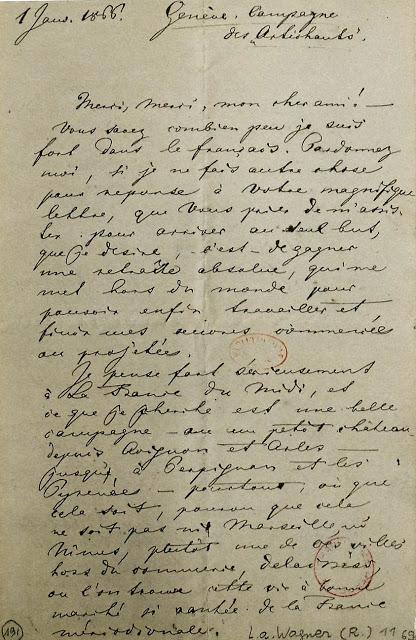 1 Janv. 1866. Genève. Campagne
des "Artichauts".
Merci, merci, mon cher ami! —
Vous savez combien peu je suis
fort dans le français. Pardonnez
moi, si je ne fais autre chose
pour reponse à votre magnifique
lettre, que vous prier de m'assis-
ter pour arriver au seul but,
que je desire, c'est-de gagner
une retraîte absolue, qui me
met hors du monde pour
pouvoir enfin travailler et
finir mes œuvres commencées
ou projetées.
Je pense fort sérieusement
à la France du Midi, et
ce que je cherche est une belle
campagne — ou un petit château
depuis Avignon et Arles —
jusqu'à Perpignan et les
Pyrenées — pourtout, où que
cela soit, pourvu que cela
ne soit pas ni Marseille, ni
Nimes, plutôt une de ces villes
hors du commerce,
où l'on trouve cette vie à bonne
marché si vantée de la France
méridionale.
191
La. Wagner (R.) 11